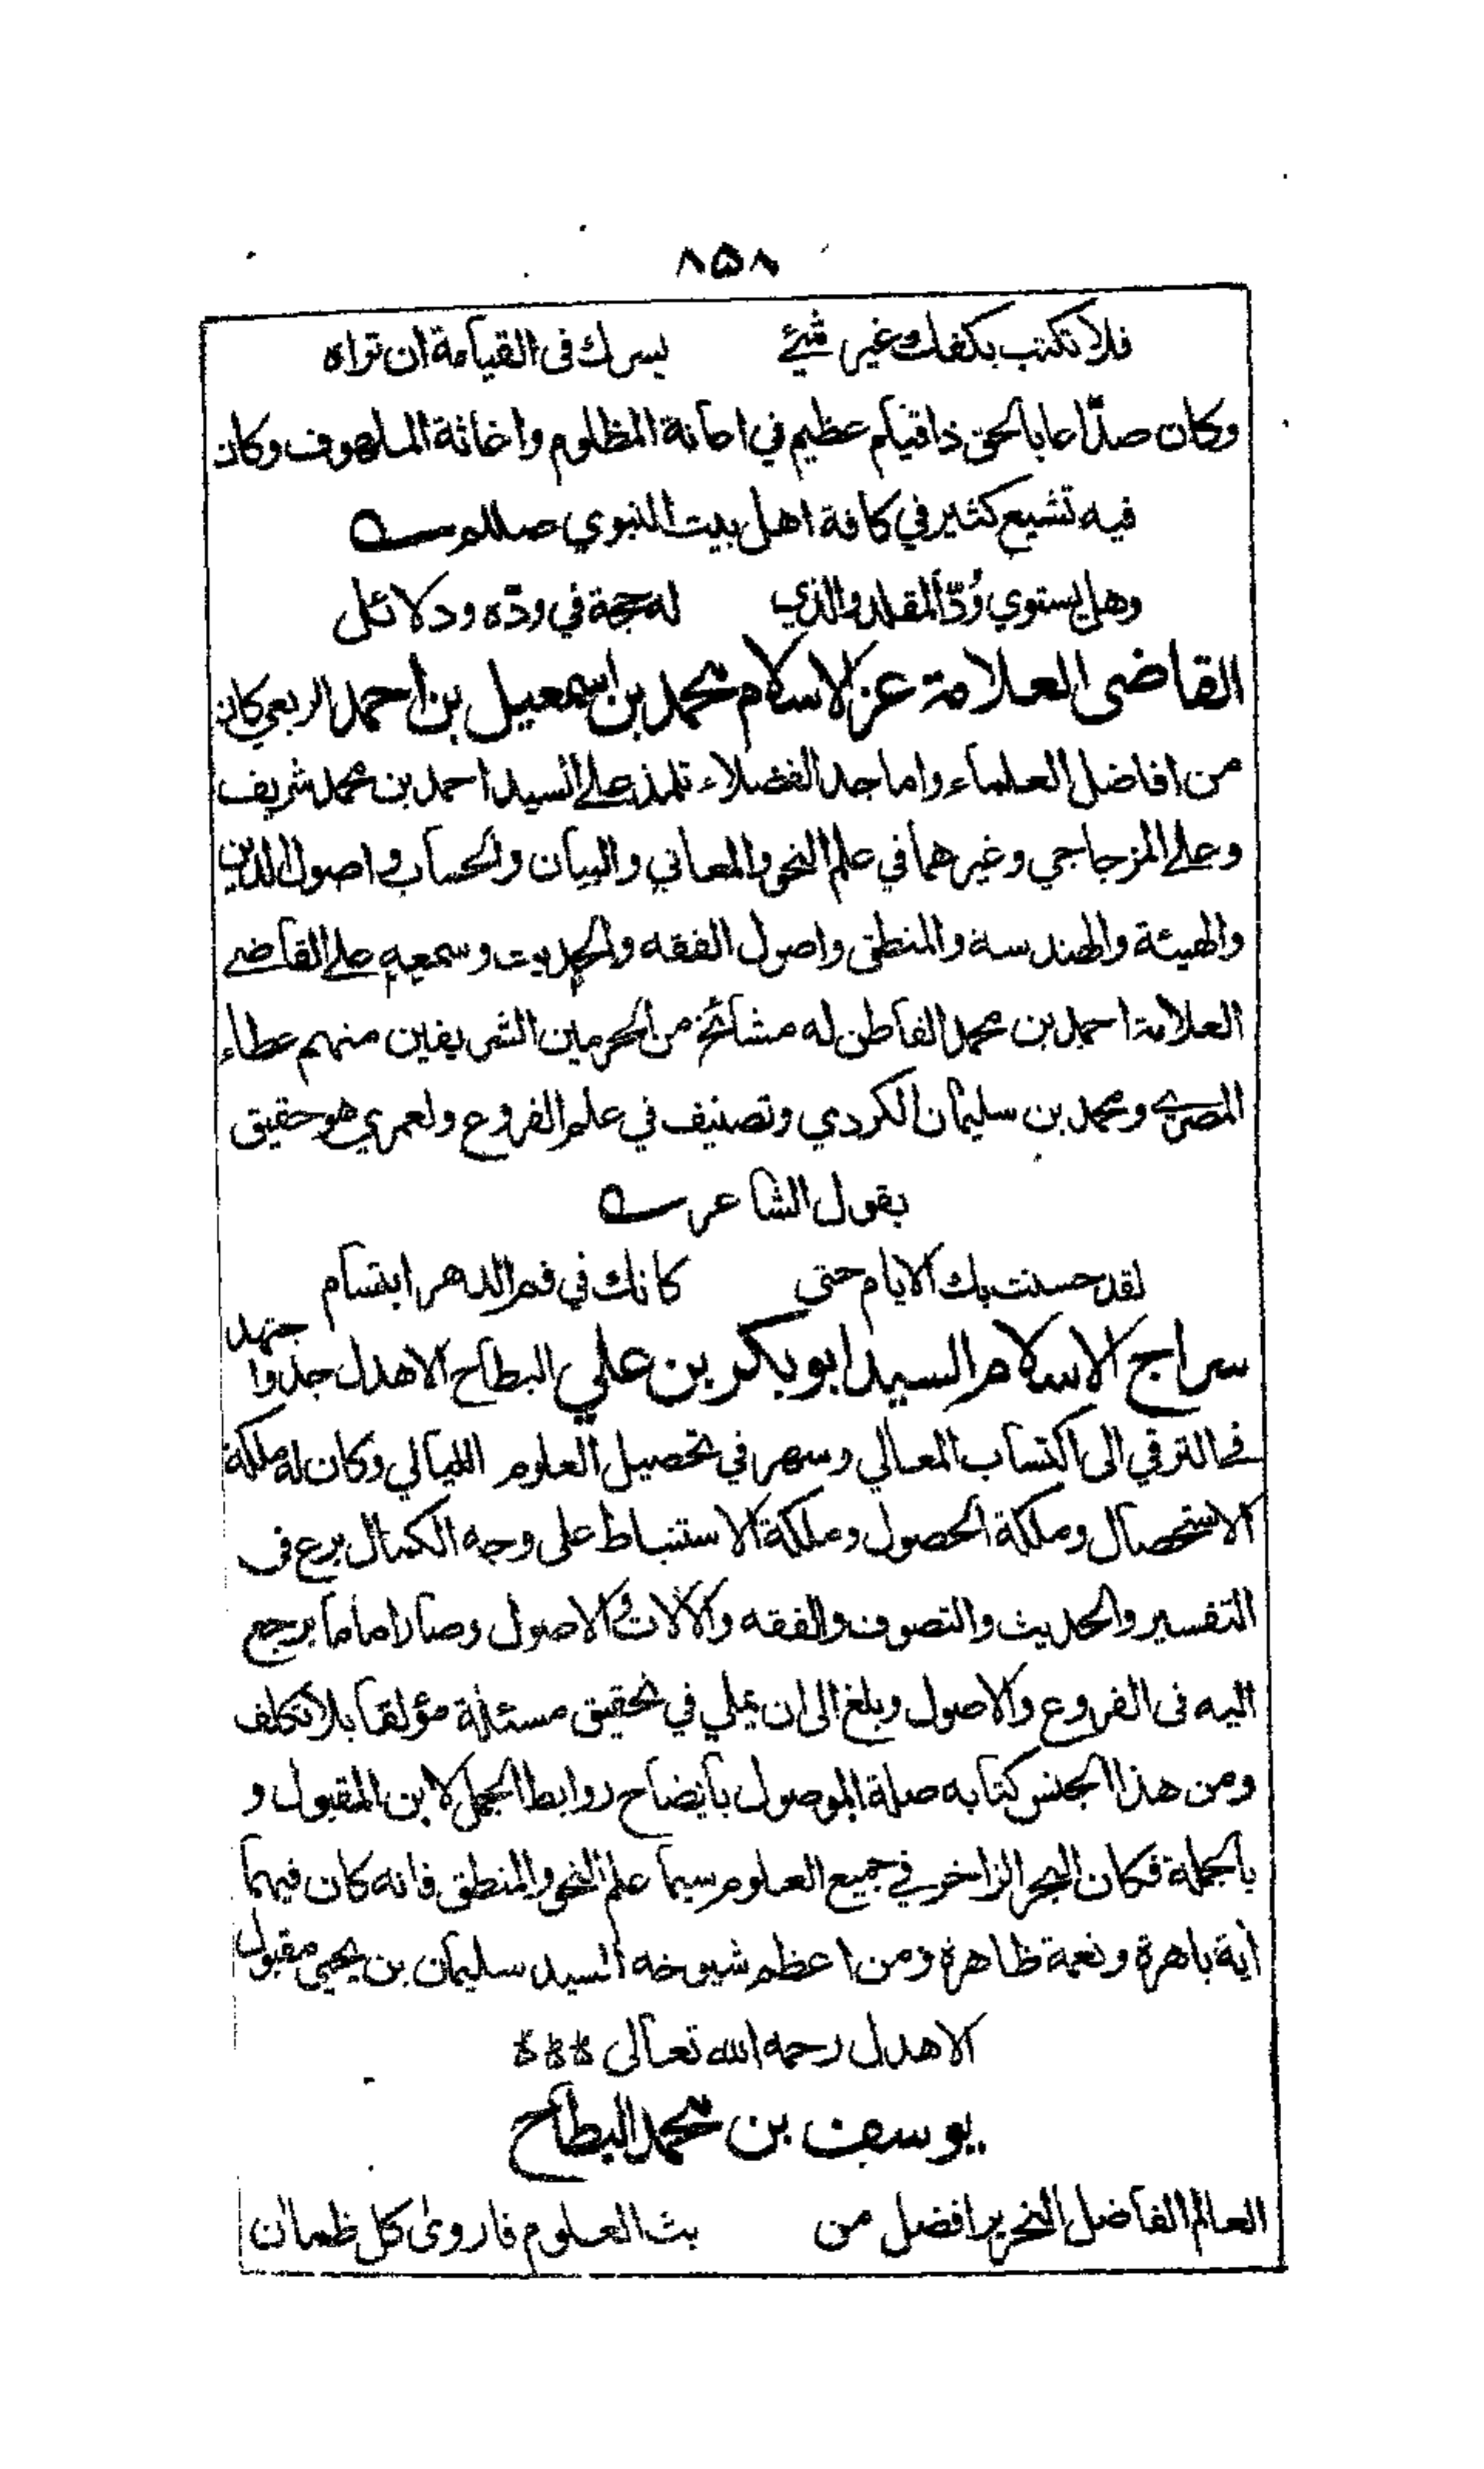 ۸۵۸
فلا تكتب بكفك غير شيئ يسرك فى القيامة ان تراه
وكان صدّاعا بالحق ذا قيام عظيم في اعانة المظلوم واغاثة الملهوف وكان
فيه تشيع كثير في كافة اهل بيت النبوي صللم ؎
وهل يستوي وُدّ المقلد والذي له حجة في ودّه ودلائل
القاضى العلامة عز الاسلام محمد بن اسمعيل بن احمد الربعي كان
من افاضل العلماء واماجد الفضلاء تلمذ على السيد احمد بن محمد شريف
وعلى المزجاجي وغيرهما في علم النحو والمعاني والبيان والحساب واصول الدين
والهيئة والهندسة والمنطق واصول الفقه والحديث وسمعه على القاضے
العلامة احمد بن محمد القاطن له مشائخ من الحرمين الشريفين منهم عطاء
المصرے ومحمد بن سليمان الكردي وتصنيف في علم الفروع ولعمري هو حقيق
بقول الشاعر ؎
لقد حسنت بك الايام حتى كانك في فم الدهر ابتسام
سراج الاسلام السيد ابو بكر بن علي البطاح الاهدل جد واجتهد
فى الترقي الى اكتساب المعالي وسهر في تحصيل العلوم الليالي وكان له ملكة
الاستحصال وملكة الحصول وملكة الاستنباط على وجه الكمال برع فى
التفسير والحديث والتصوف والفقه والآلات والاصول وصار اماما يرجع
اليه فى الفروع والاصول وبلغ الى ان يملي في تحقيق مسئلة مؤلفا بلا تكلف
ومن هذا الجنس كتابه صلة الموصول بايضاح روابط الجمل لابن المقبول و
بالجملة فكان البحر الزاخر في جميع العلوم سيما علم النحو والمنطق فانه كان فيهما
أية باهرة ونعمة ظاهرة ومن اعظم شيوخه السيد سليمان بن يحيى مقبول
الاهدل رحمه الله تعالى
يوسف بن محمد البطاح
العالم الفاضل النحرير افضل من بث العلوم فاروى كل ظمان